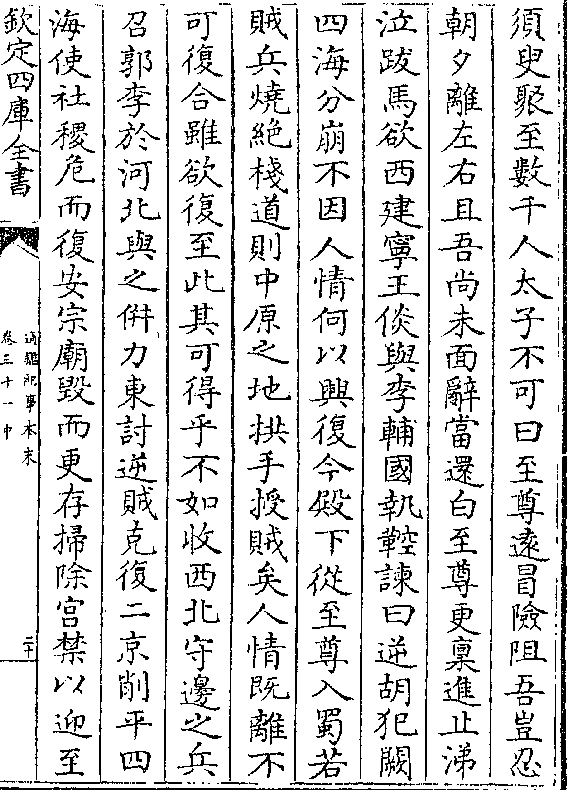 須臾聚至數千人太子不可曰至尊逺冒險阻吾豈忍
朝夕離左右且吾尚未面辭當還白至尊更稟進止涕
泣跋馬欲西建寧王倓與李輔國執鞚諫曰逆胡犯闕
四海分崩不因人情何以興復今殿下從至尊入蜀若
賊兵燒絶棧道則中原之地拱手授賊矣人情既離不
可復合雖欲復至此其可得乎不如收西北守邊之兵
召郭李於河北與之併力東討逆賊克復二京削平四
海使社稷危而復安宗廟毀而更存掃除宫禁以迎至
欽定四庫全書
通鑑紀事本末
卷三十一中
二十